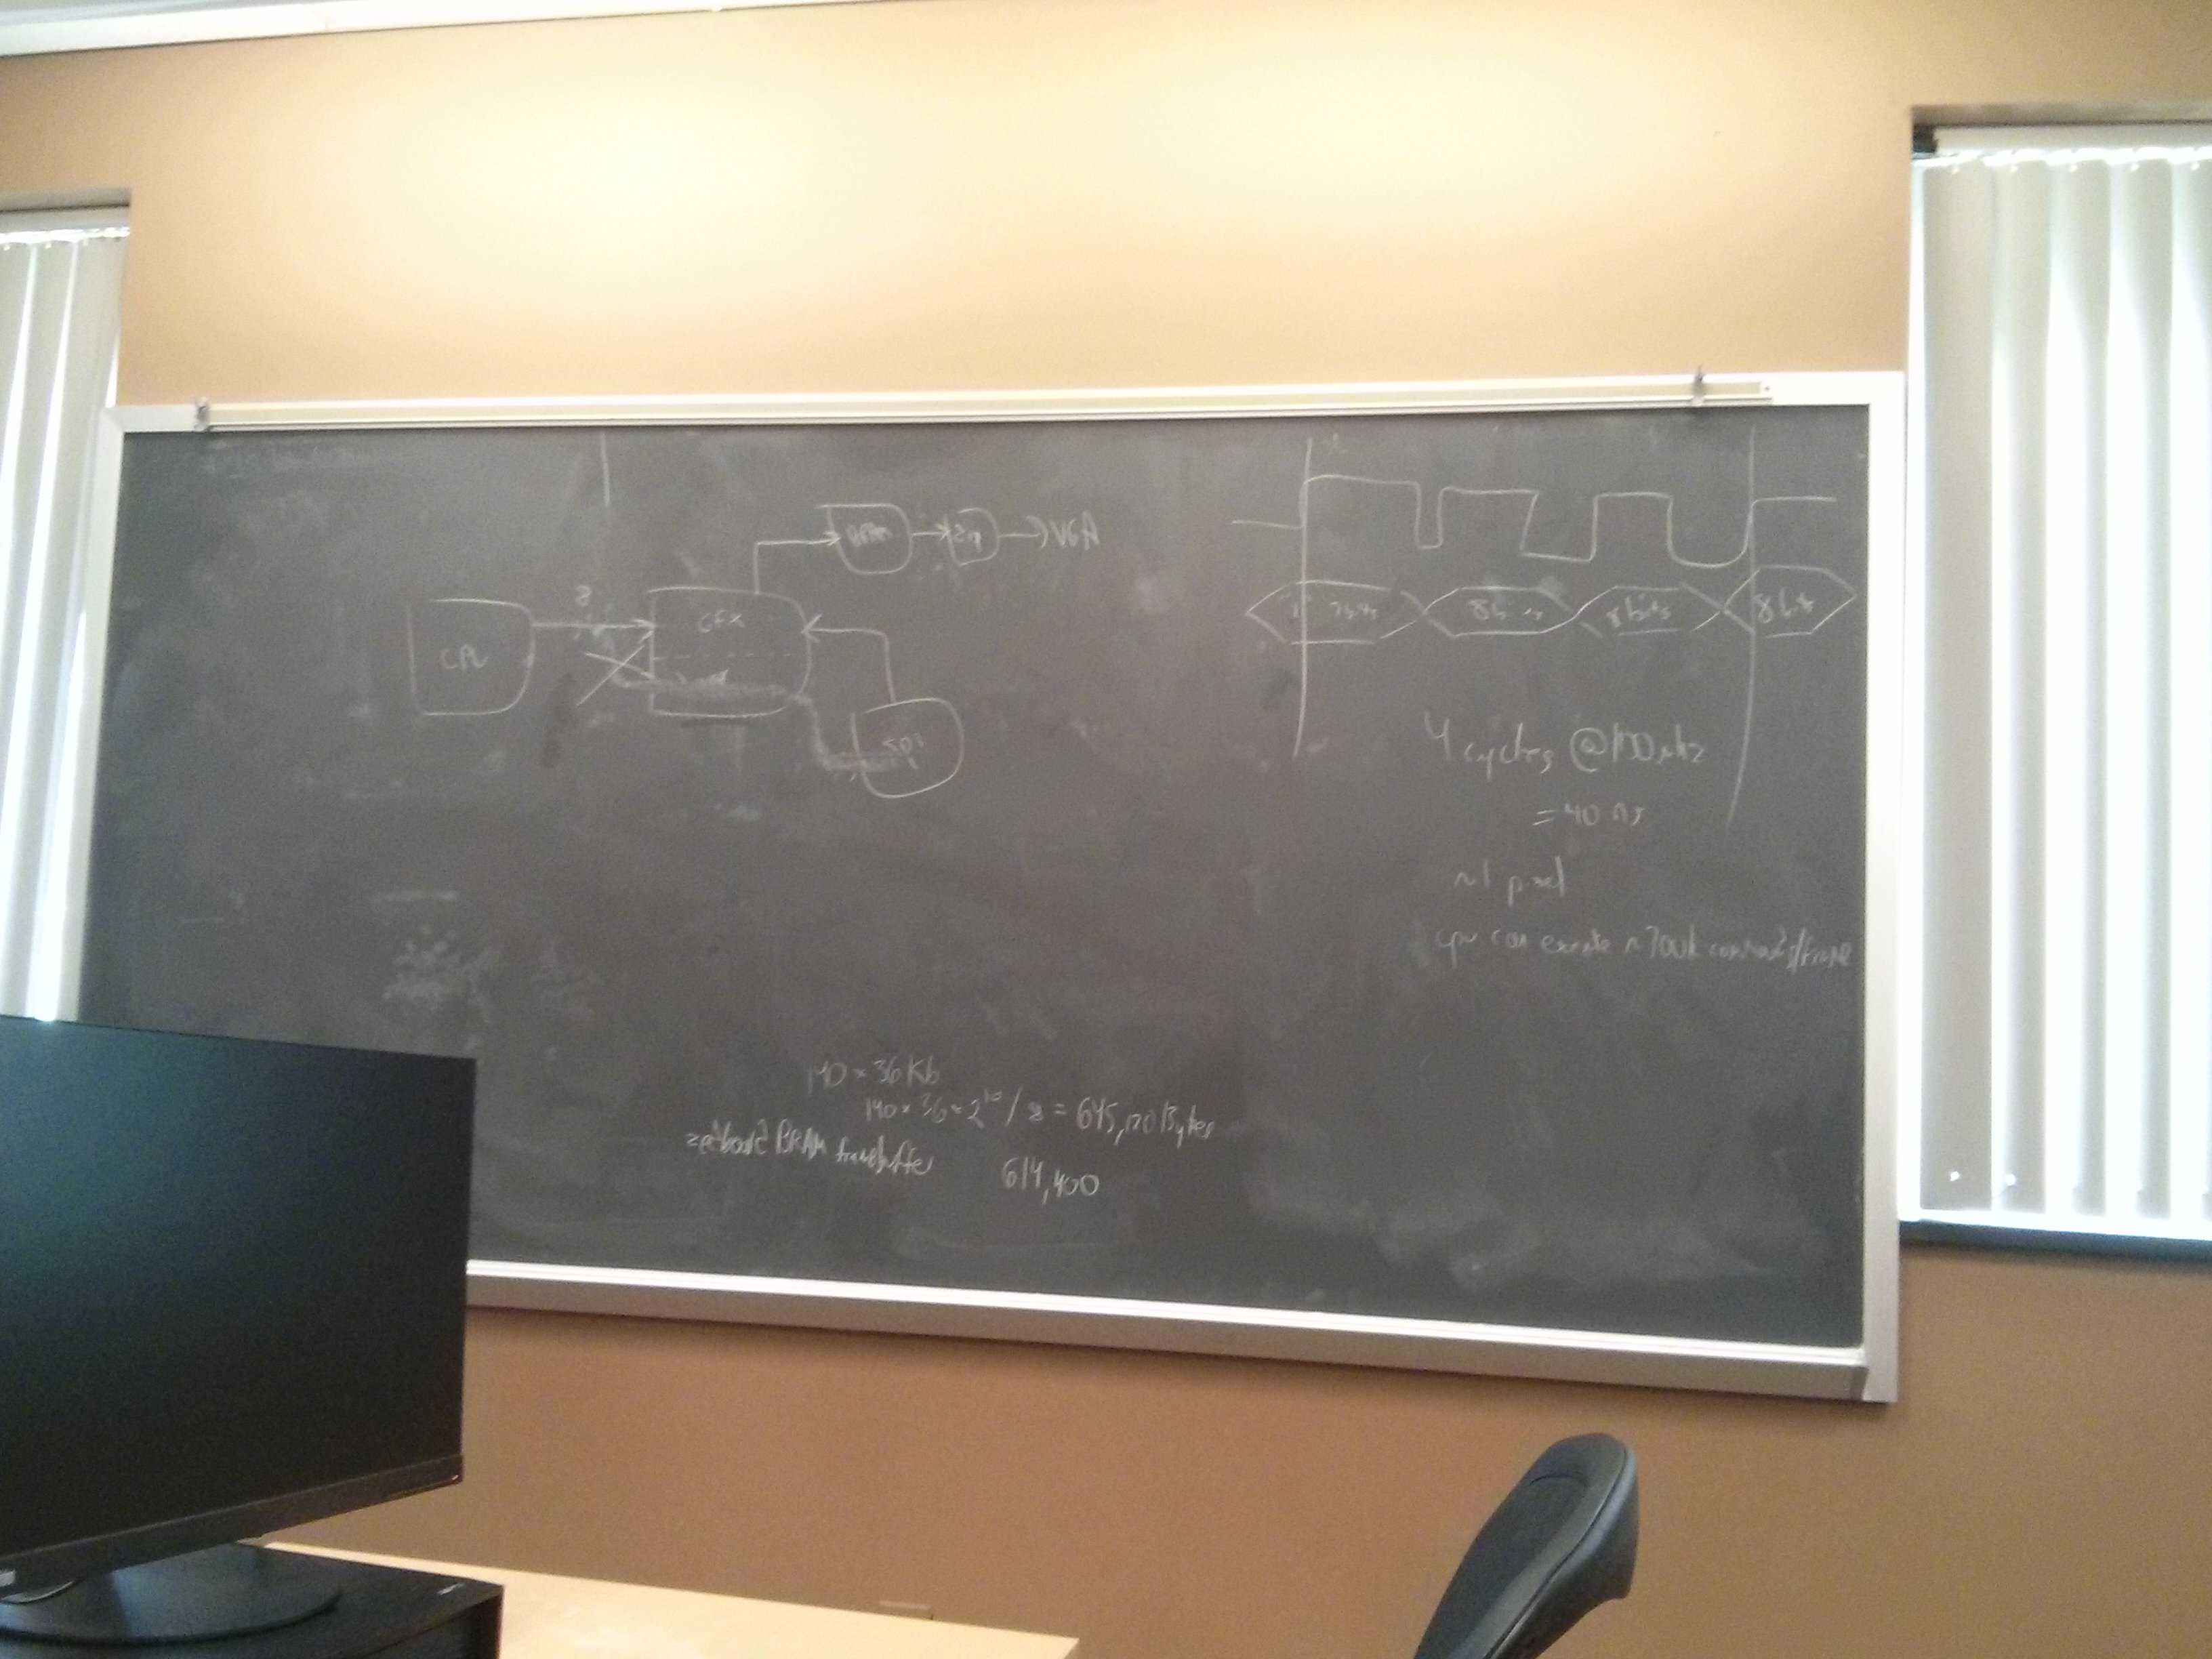 BRAM
VGA
8
GFX
CPU
SPI
7bits
8bits
8bits
8bit
4 cycles @100MHz
= 40 ns
~1 pixel
cpu can execute ~700k commands/frame
140 × 36 Kb
140 × 36 × 2^10 / 8 = 645,120 Bytes
zedboard BRAM framebuffer
614,400